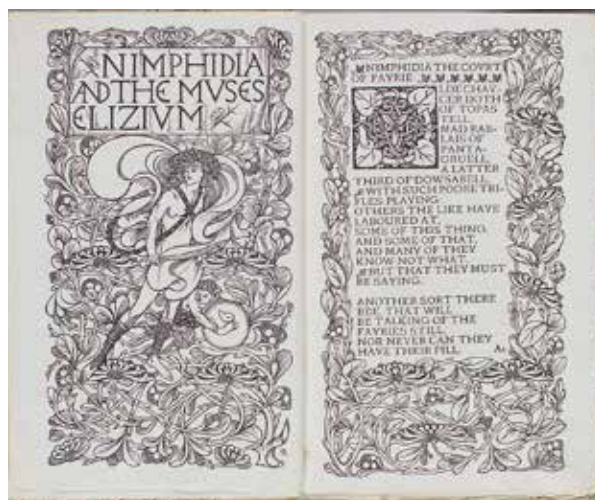 NIMPHIDIA
AND THE MVSES
ELIZIVM
NIMPHIDIA THE COVRT
OF FAYRIE
OLDE CHAV-
CER DOTH
OF TOPAS
TELL
MAD RAB-
LAIS OF
PANTA-
GRUELL
A LATTER
THIRD OF DOWSABELL
WITH SUCH POORE TRI-
FLES PLAYING:
OTHERS THE LIKE HAVE
LABOURED AT,
SOME OF THIS THING,
AND SOME OF THAT,
AND MANY OF THEY
KNOW NOT WHAT,
BUT THAT THEY MUST
BE SAYING.
ANOTHER SORT THERE
BEE, THAT WILL
BE TALKING OF THE
FAYRIES STILL,
NOR NEVER CAN THEY
HAVE THEIR FILL